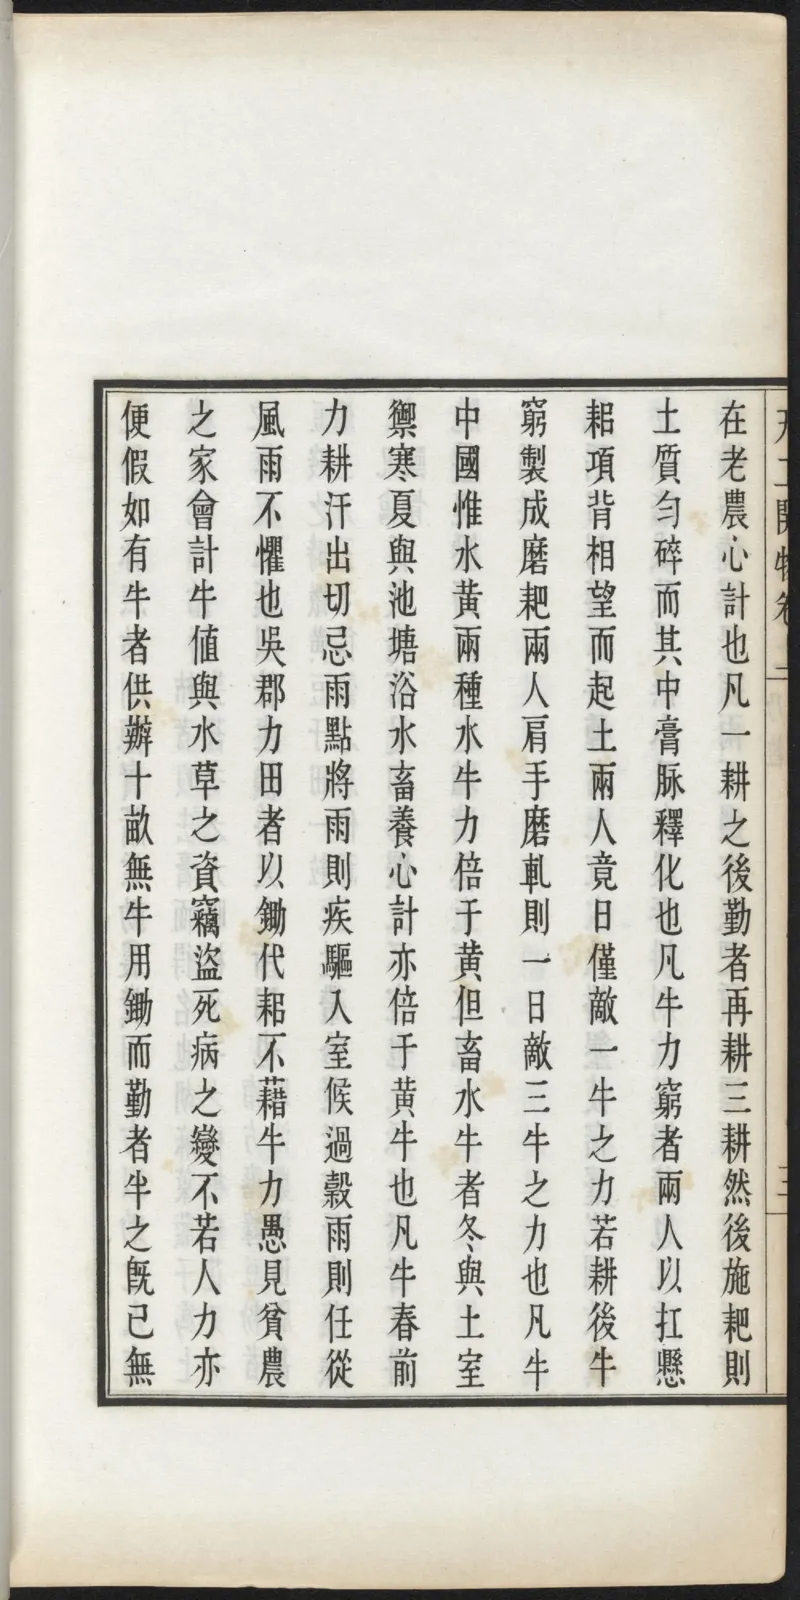 天工開物卷上
三
在老農心計也凡一耕之後勤者再耕三耕然後施耙則
土質勻碎而其中膏脉釋化也凡牛力窮者兩人以扛懸
耜項背相望而起土兩人竟日僅敵一牛之力若耕後牛
窮製成磨耙兩人肩手磨軋則一日敵三牛之力也凡牛
中國惟水黄兩種水牛力倍于黄但畜水牛者冬與土室
禦寒夏與池塘浴水畜養心計亦倍于黄牛也凡牛春前
力耕汗出切忌雨點將雨則疾驅入室候過穀雨則任從
風雨不懼也吳郡力田者以鋤代耜不藉牛力愚見貧農
之家會計牛值與水草之資竊盜死病之變不若人力亦
便假如有牛者供辦十畝無牛用鋤而勤者半之旣已無